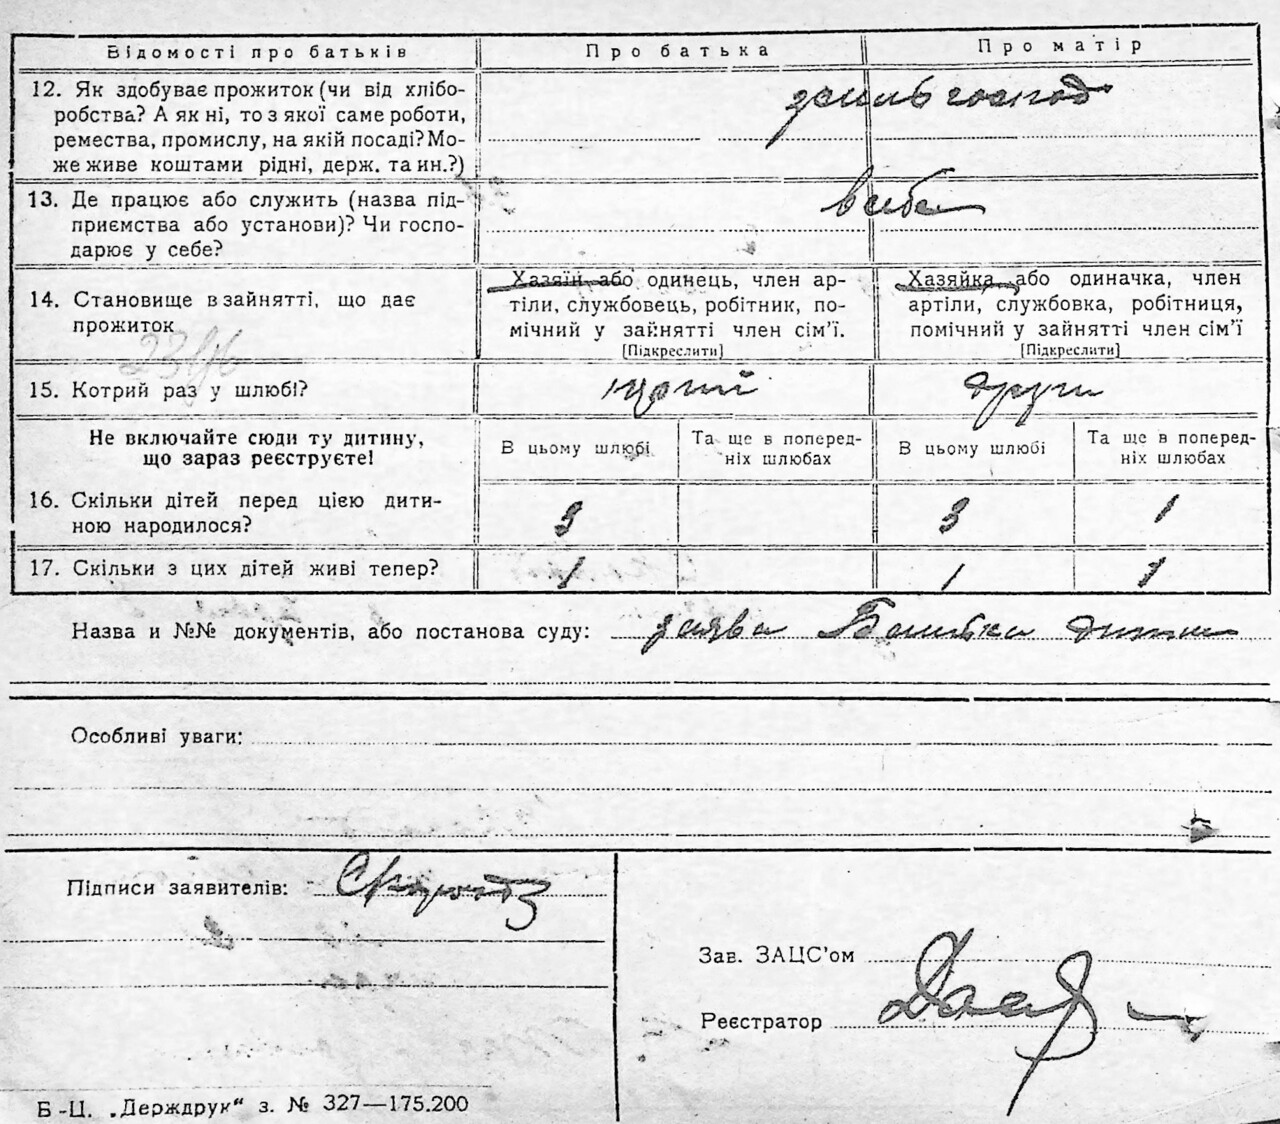 Відомості про батьків Про батька Про матір
12. Як здобуває прожиток (чи від хлібо-
робства? А як ні, то з якої саме роботи,
ремества, промислу, на якій посаді? Мо-
же живе коштами рідні, держ. та ин.?)
сільгоспод
13. Де працює або служить (назва під-
приємства або установи)? Чи госпо-
дарює у себе?
в себе
14. Становище в зайнятті, що дає
прожиток
Хазяїн або одинець, член ар-
тіли, службовець, робітник, по-
мічний у зайнятті член сім'ї.
[Підкреслити]
Хазяйка або одиначка, член
артіли, службовка, робітниця,
помічний у зайнятті член сім'ї
[Підкреслити]
15. Котрий раз у шлюбі? други
Не включайте сюди ту дитину,
що зараз реєструєте!
В цьому шлюбі
Та ще в поперед-
ніх шлюбах
В цьому шлюбі
Та ще в поперед-
ніх шлюбах
16. Скільки дітей перед цією дити-
ною народилося?
3 3 1
17. Скільки з цих дітей живі тепер? 1 1 1
Назва и №№ документів, або постанова суду: заява Батька дитини
Особливі уваги:
Підписи заявителів:
Зав. ЗАЦС'ом
Реєстратор
Б-Ц. „Держдрук“ з. № 327—175.200